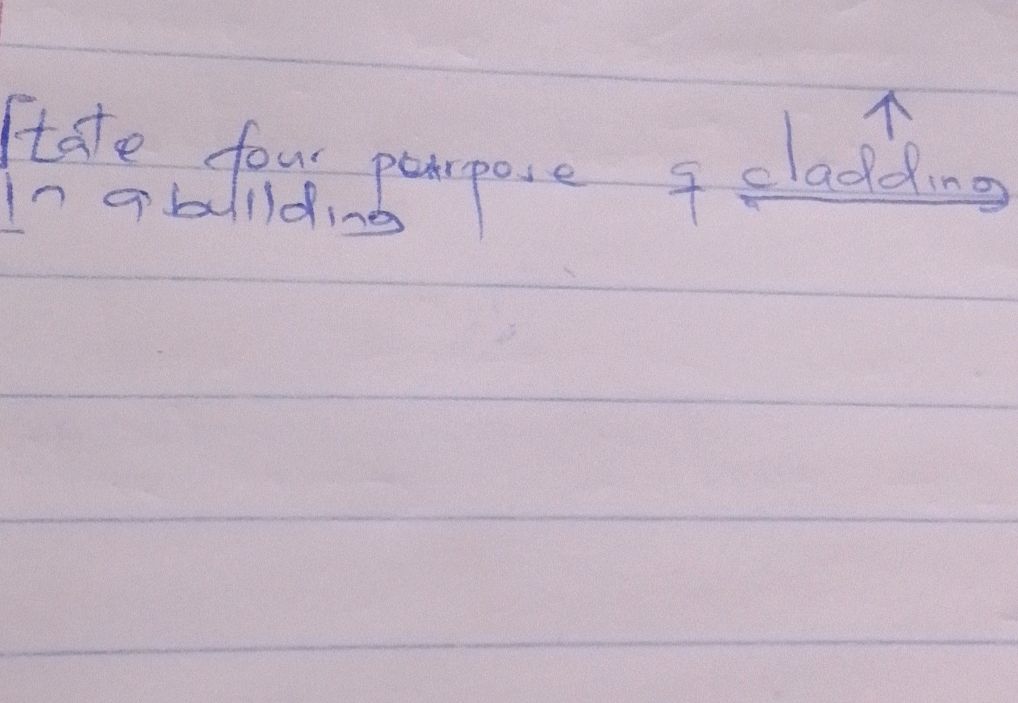 State four purpose of cladding
In a building